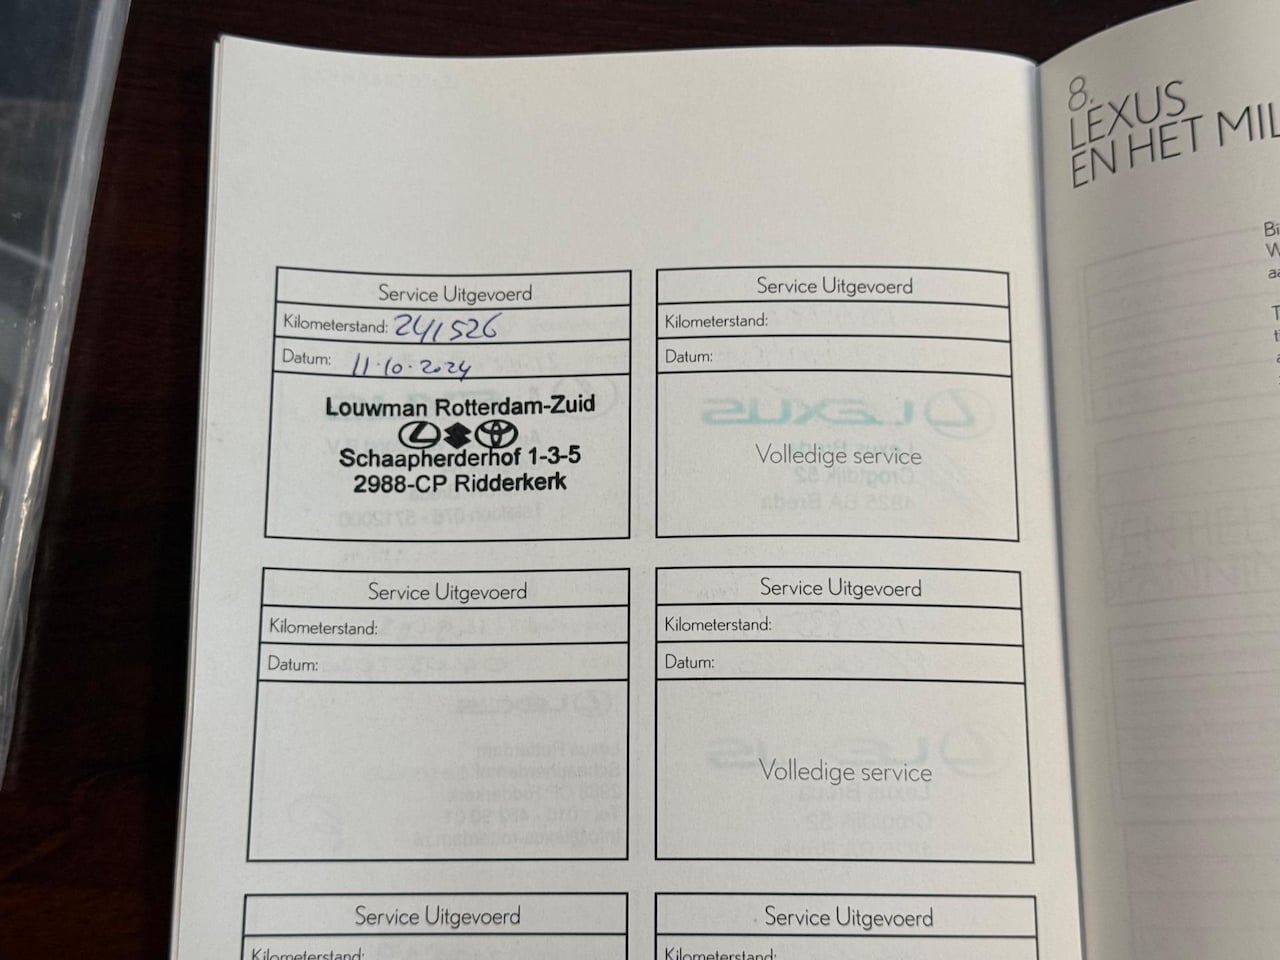 8.
LEXUS
EN HET MIL
Service Uitgevoerd
Kilometerstand: 241526
Datum: 11-10-2024
Louwman Rotterdam-Zuid
Schaapherderhof 1-3-5
2988-CP Ridderkerk
Service Uitgevoerd
Kilometerstand:
Datum:
Volledige service
Service Uitgevoerd
Kilometerstand:
Datum:
Service Uitgevoerd
Kilometerstand:
Datum:
Volledige service
Service Uitgevoerd
Kilometerstand:
Service Uitgevoerd
Kilometerstand: